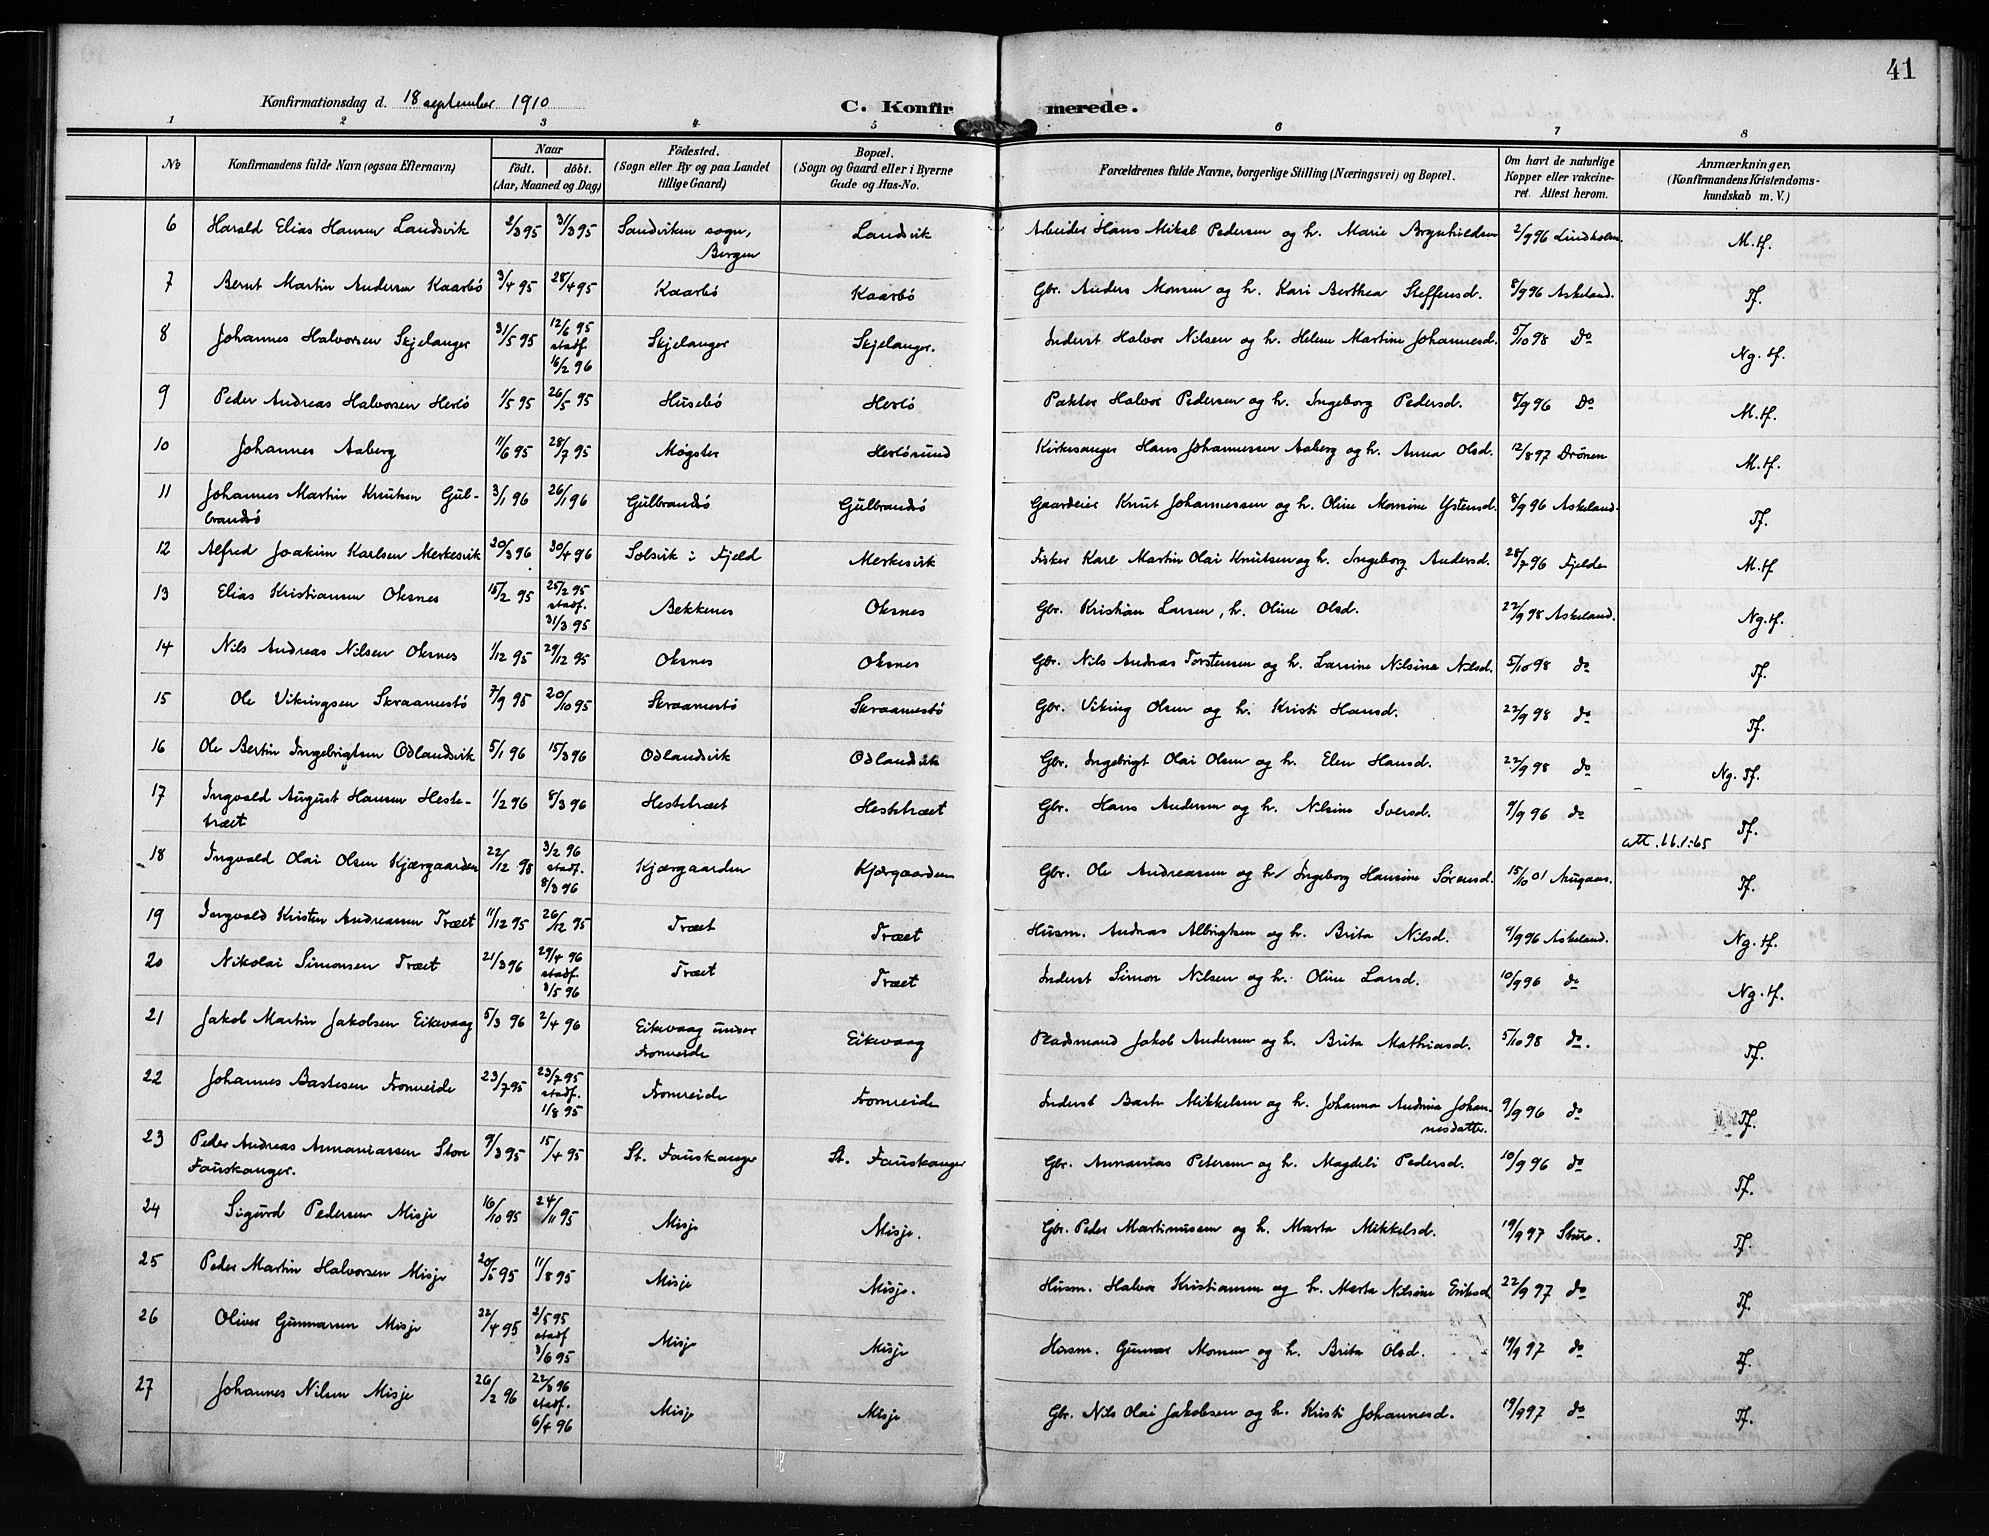 41
Konfirmationsdag d. 18 september 1910
C. Konfirmerede.
1 2 3 4 5 6 7 8
No Konfirmandens fulde Navn (ogsaa Efternavn) Naar født. døbt. (Aar, Maaned og Dag) Födested. (Sogn eller By og paa Landet tillige Gaard) Bopæl. (Sogn og Gaard eller i Byerne Gade og Hus-No. Forældrenes fulde Navne, borgerlige Stilling (Næringsvei) og Bopæl. Om havt de naturlige Kopper eller vakcineret. Attest herom. Anmærkninger. (Konfirmandens Kristendomskundskab m. V.)
6 Harald Elias Hansen Landsvik 2/3 95 31/3 95 Sandviken sogn, Bergen Landsvik Arbeider Hans Mikal Pedersen og h. Marie Brynhildsen 2/9 96 Lindholm. M.tf.
7 Bernt Martin Andersen Kaarbö 3/4 95 28/4 95 Kaarbö Kaarbö Gbr. Anders Monsen og h. Kari Berthea Steffensd. 8/9 96 Askeland. Tf.
8 Johannes Halvorsen Skjelanger 31/5 95 12/6 95 stadf. 16/2 96 Skjelanger Skjelanger. Inderst Halvor Nilsen og h. Helene Martine Johannesd. 5/10 98 Do Ng. tf.
9 Peder Andreas Halvorsen Herlö 1/5 95 26/5 95 Husebö Herlö Pakter Halvor Pedersen og h. Ingeborg Pedersd. 8/9 96 Do M.tf.
10 Johannes Aaberg 11/6 95 28/7 95 Møgster Herlösund Kirkesanger Hans Johannessen Aaberg og h. Anna Olsd. 12/8 97 Drönen M.tf.
11 Johannes Martin Knutsen Gulbrandsö 3/1 96 26/1 96 Gulbrandsö Gulbrandsö Gaardeier Knut Johannessen og h. Oline Monsine Ystensd. 8/9 96 Askeland. Tf.
12 Alfred Joakim Karlsen Merkesvik 20/3 96 30/4 96 Solsvik i Fjeld Merkesvik Fisker Karl Martin Olai Knutsen og h. Ingeborg Andersd. 28/7 96 Fjelde M.tf
13 Elias Kristiansen Oksnes 15/2 95 25/2 95 stadf. 31/3 95 Bekkenes Oksnes Gbr. Kristian Larsen, h. Oline Olsd. 22/9 98 Askeland. Ng.tf.
14 Nils Andreas Nilsen Oksnes 1/12 95 29/12 95 Oksnes Oksnes Gbr. Nils Andreas Torstensen og h. Larsine Nilsine Nilsd. 5/10 98 do Tf.
15 Ole Vikingsen Skraamestö 7/9 95 20/10 95 Skraamestö Skraamestö Gbr. Viking Olsen og h. Kristi Hansd. 22/9 98 do Tf.
16 Ole Bertin Ingebrigtsen Odlandsvik 5/1 96 15/3 96 Odlandsvik Odlandsvik Gbr. Ingebrigt Olai Olsen og h. Elen Hansd. 22/9 98 do Ng. Tf.
17 Ingvald August Hansen Hestetræet 1/2 96 8/3 96 Hestetræet Hestetræet Gbr. Hans Andersen og h. Nilsine Iversd. 9/9 96 do Tf.
att. 26.1.65
18 Ingvald Olai Olsen Kjærgaarden 22/12 95 3/2 96 stadf. 8/3 96 Kjærgaarden Kjærgaarden Gbr. Ole Andreassen og h. Ingeborg Hansine Sörensd. 15/10 01 Tf.
19 Ingvald Kristen Andreassen Træet 11/12 95 26/12 95 Træet Træet Husm. Andreas Albrigtsen og h. Brita Nilsd. 9/9 96 Askeland. Ng. tf.
20 Nikolai Simonsen Træet 21/3 96 29/4 96 stadf. 3/5 96 Træet Træet Inderst Simon Nilsen og h. Oline Larsd. 10/9 96 do Ng. tf.
21 Jakob Martin Jakobsen Eikevaag 5/3 96 2/4 96 Eikevaag under Fromreide Eikevaag Pladsmand Jakob Andersen og h. Brita Mathiasd. 5/10 98 do. Tf.
22 Johannes Bastesen Fromreide 23/7 95 23/7 95 stadf. 1/8 95 Fromreide Fromreide Inderst Baste Mikkelsen og h. Johanna Andrina Johannesdatter. 9/9 96 do Tf.
23 Peder Andreas Annaniassen Store Fauskanger. 9/3 95 15/4 95 St. Fauskanger St. Fauskanger Gbr. Annanias Petersen og h. Magdeli Pedersd. 10/9 96 do Tf.
24 Sigurd Pedersen Misje 16/10 95 24/11 95 Misje Misje. Gbr. Peder Martinussen og h. Marta Mikkelsd. 19/9 97 Sture. Tf.
25 Peder Martin Halvorsen Misje 20/5 95 11/8 95 Misje Misje. Husm. Halvor Kristiansen og h. Marta Nilsine Eriksd. 22/9 97 do Tf.
26 Oliver Gunnarsen Misje 22/4 95 2/5 95 stadf 3/6 95 Misje Misje Husm. Gunnar Monsen og h. Brita Olsd. 19/9 97 do Tf.
27 Johannes Nilsen Misje 26/2 96 22/3 96 stadf. 6/4 96 Misje Misje Gbr. Nils Olai Jakobsen og h. Kristi Johannesd. 19/9 97 do Tf.